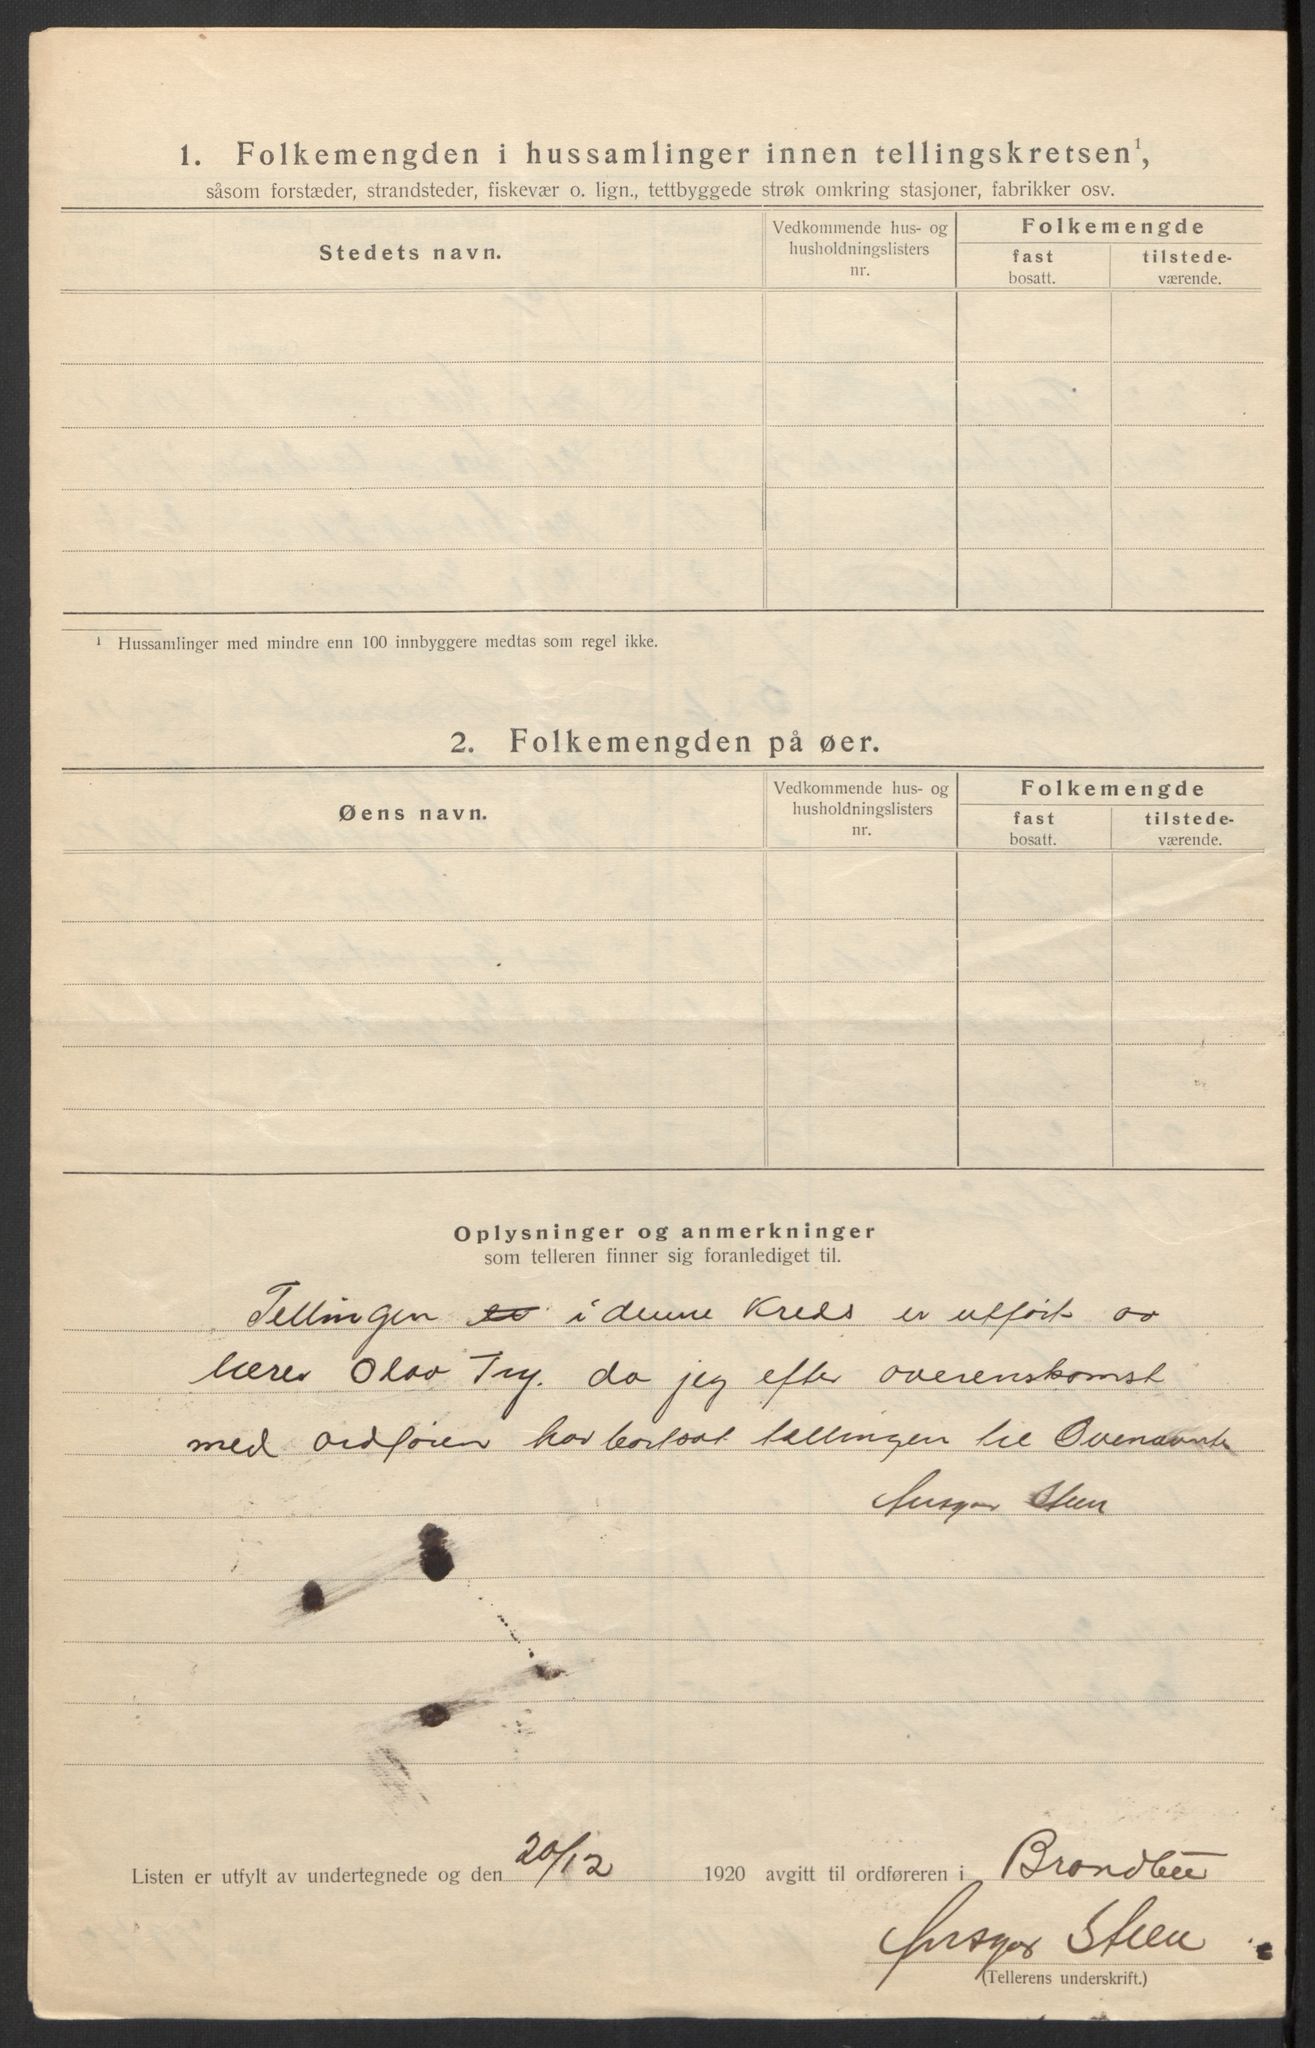 1. Folkemengden i hussamlinger innen tellingskretsen¹,
såsom forstæder, strandsteder, fiskevær o. lign., tettbyggede strøk omkring stasjoner, fabrikker osv.
Stedets navn.
Vedkommende hus- og husholdningslisters nr.
Folkemengde
fast bosatt.
tilstede-værende.
¹ Hussamlinger med mindre enn 100 innbyggere medtas som regel ikke.
2. Folkemengden på øer.
Øens navn.
Vedkommende hus- og husholdningslisters nr.
Folkemengde
fast bosatt.
tilstede-værende.
Oplysninger og anmerkninger
som telleren finner sig foranlediget til.
Tellingen i denne Kreds er utført av
lærer Olav Try. da jeg efter overenskomst
med ordføren har tællingen til Ovenævnte
Ansgar Steen
Listen er utfylt av undertegnede og den 20/12 1920 avgitt til ordføreren i Brandbu
Ansgar Steen
(Tellerens underskrift.)